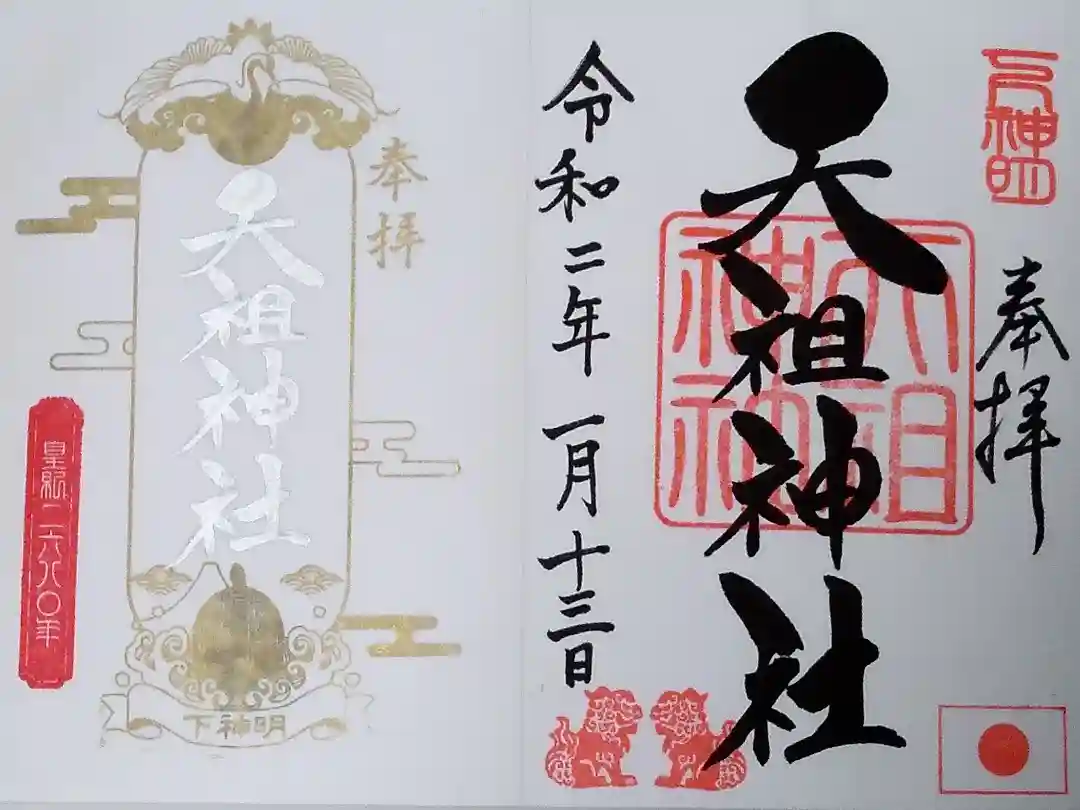 下神明
奉拝
天祖神社
天祖
神社
令和二年一月十三日
奉拝
天祖神社
下神明
皇紀二六八〇年